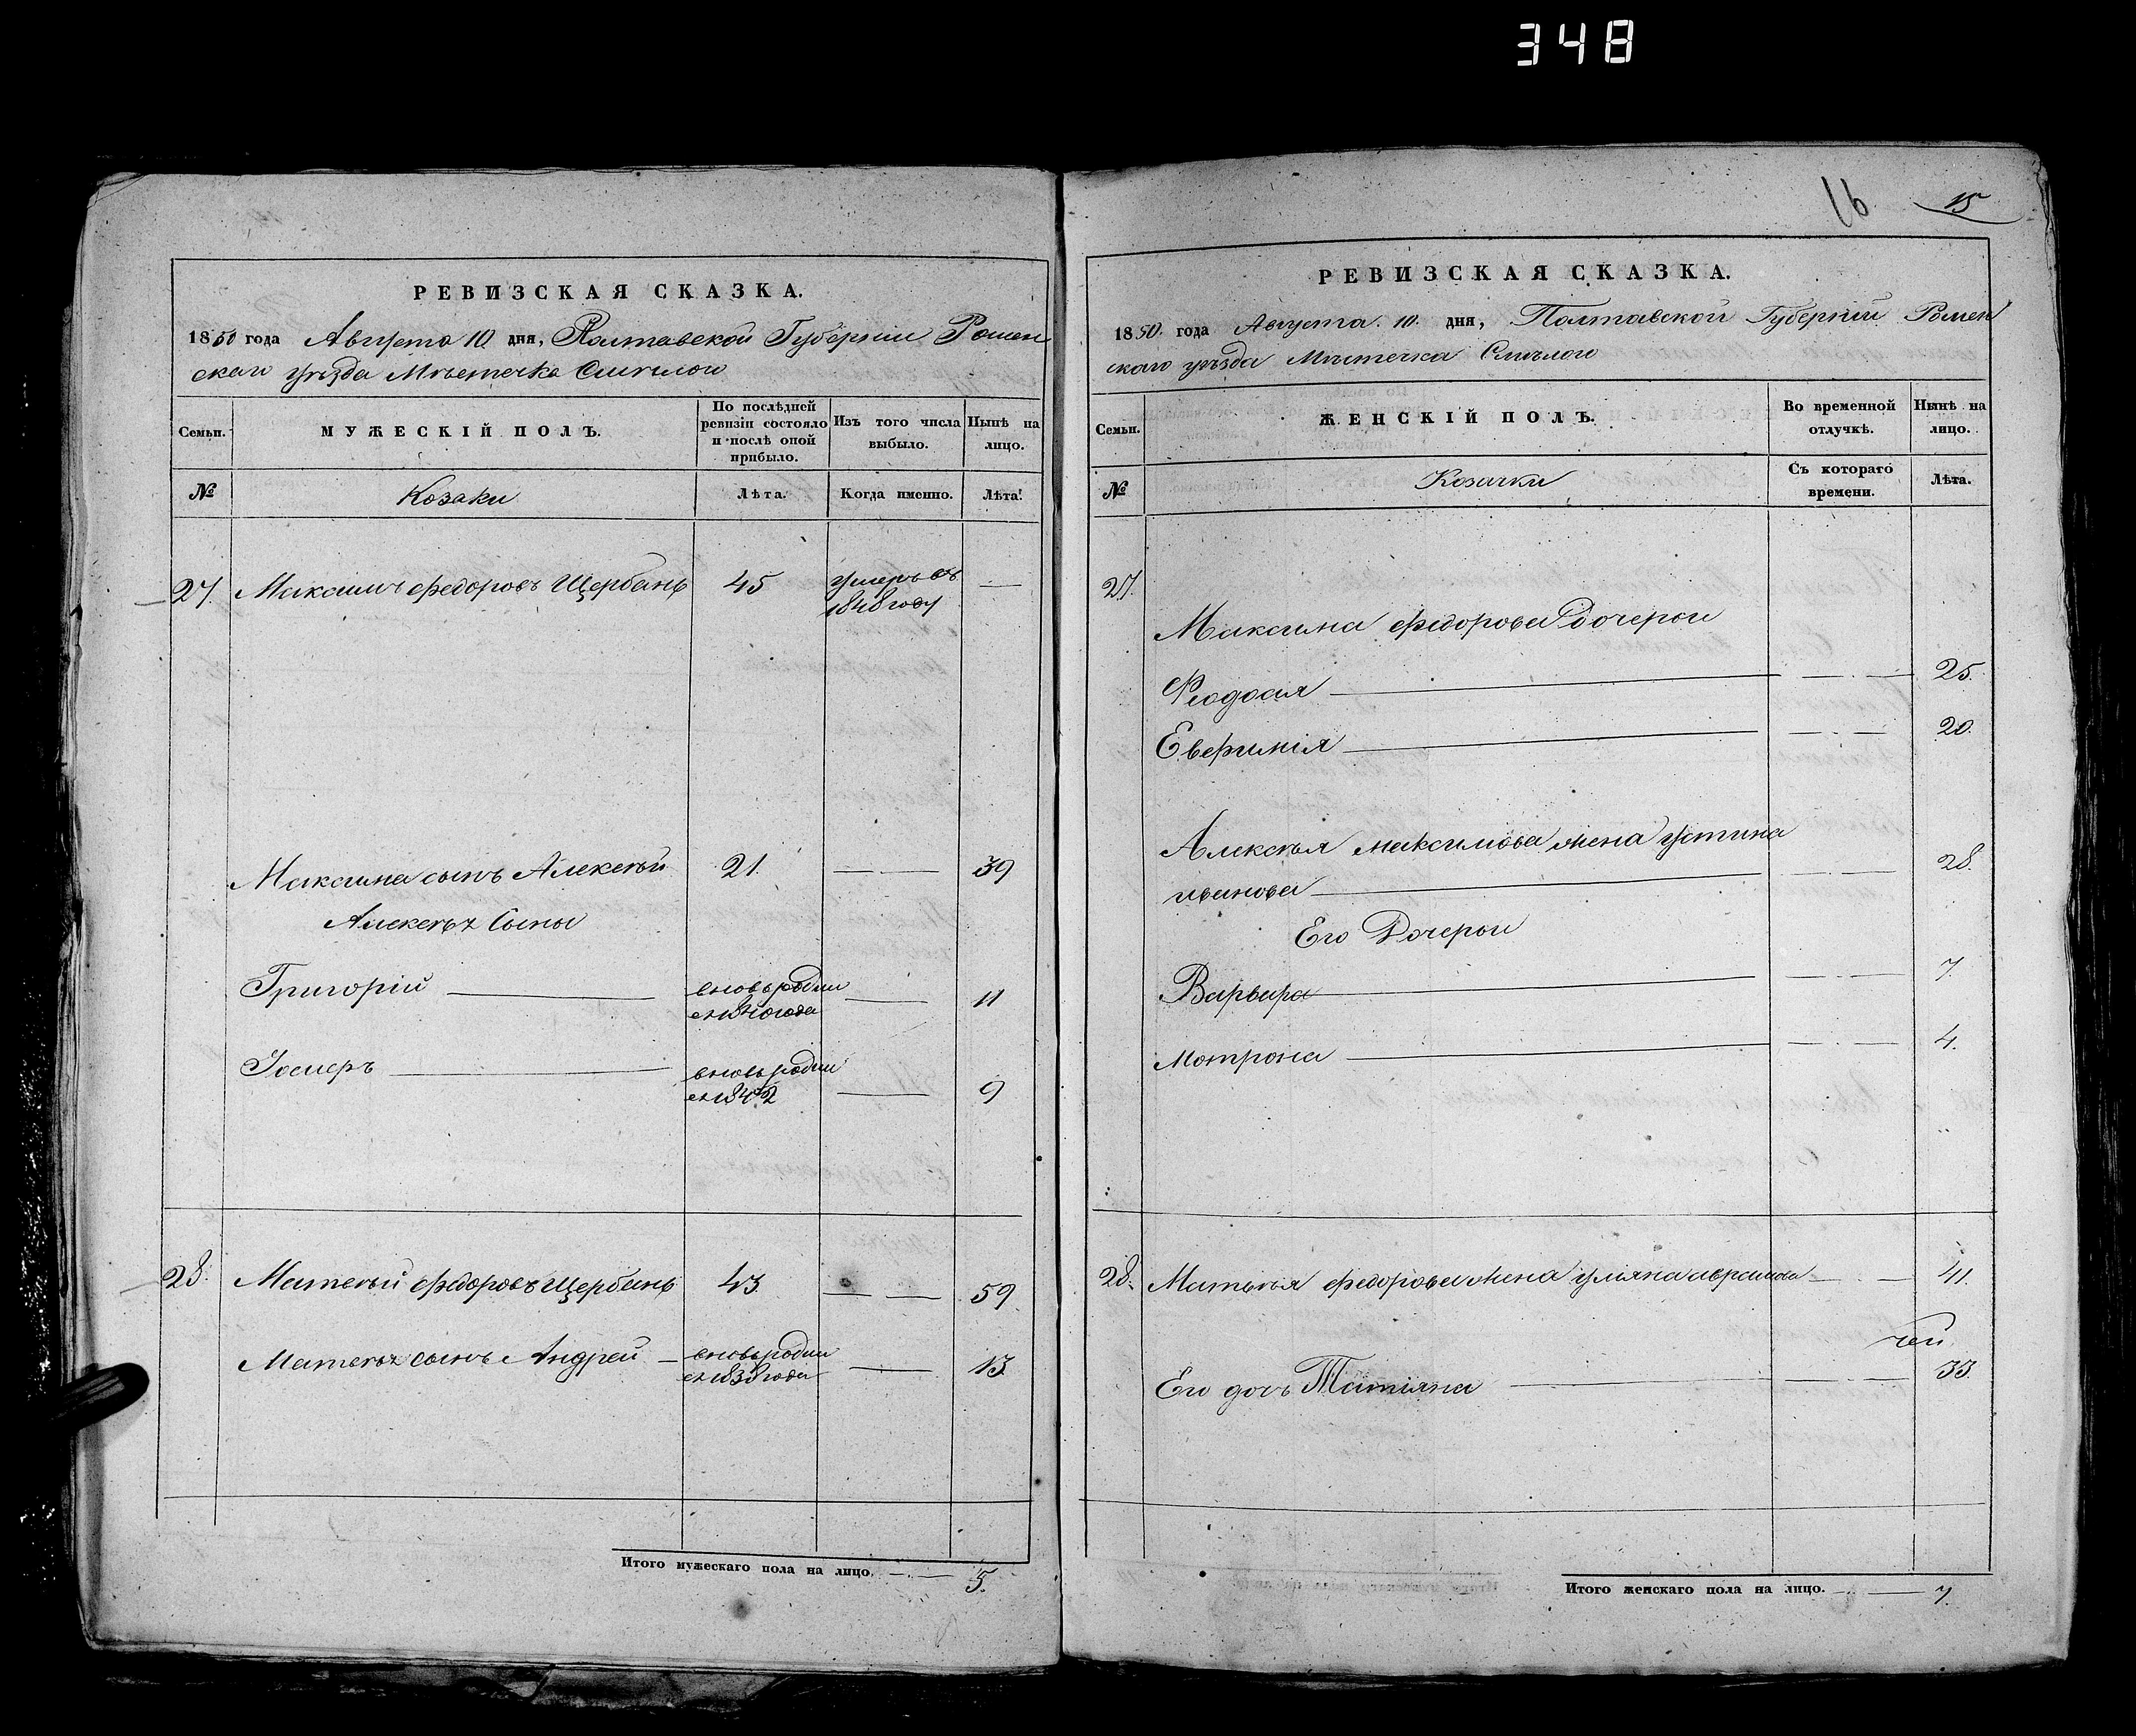 348
РЕВИЗСКАЯ СКАЗКА.
1850 года Августа 10 дня, Полтавской Губернии Ромен
скаго уѣзда Мѣстечка Смѣлого
Семьи.
МУЖЕСКІЙ ПОЛЪ.
По послѣдней
ревизіи состояло
и послѣ оной
прибыло.
Изъ того числа
выбыло.
Нынѣ на
лицо.
№
Козаки
Лѣта.
Когда именно.
Лѣта.
27. Максимъ Федоровъ Щербань 45 умеръ въ —
1848 году
Максима сынъ Алексѣй 21. — — 39
Алексѣя Сыны
Григорій — вновь родил — 11
ся 1840 года
Іосифъ — вновь родил — 9
ся 1842
28. Матвѣй Федоровъ Щербань 43. — — 59.
Матвѣя сынъ Андрей — вновь родил — 13.
ся 1838 года
Итого мужескаго пола на лицо. — 5.
16 15
РЕВИЗСКАЯ СКАЗКА.
1850. года Августа. 10. дня, Полтавской Губерніи Ромен
скаго уѣзда Мѣстечка Смѣлого
Семьи.
ЖЕНСКІЙ ПОЛЪ.
Во временной
отлучкѣ.
Нынѣ на
лицо.
№
Козачки
Съ котораго
времени.
Лѣта.
27.
Максима Федорова Дочери
Феодосія — — 25.
Евфимія — — 20.
Алексѣя Максимова жена Устина
Иванова — — 28.
Его Дочери
Варвара — — 7.
Мотрона — — 4.
28. Матвѣя Федорова жена Уляна Аврамова — — 41.
Его дочь Татіяна — — 33.
Итого женскаго пола на лицо. — 7.